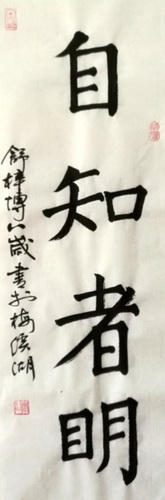 自知者明
舒梓博八歲書於梅溪湖